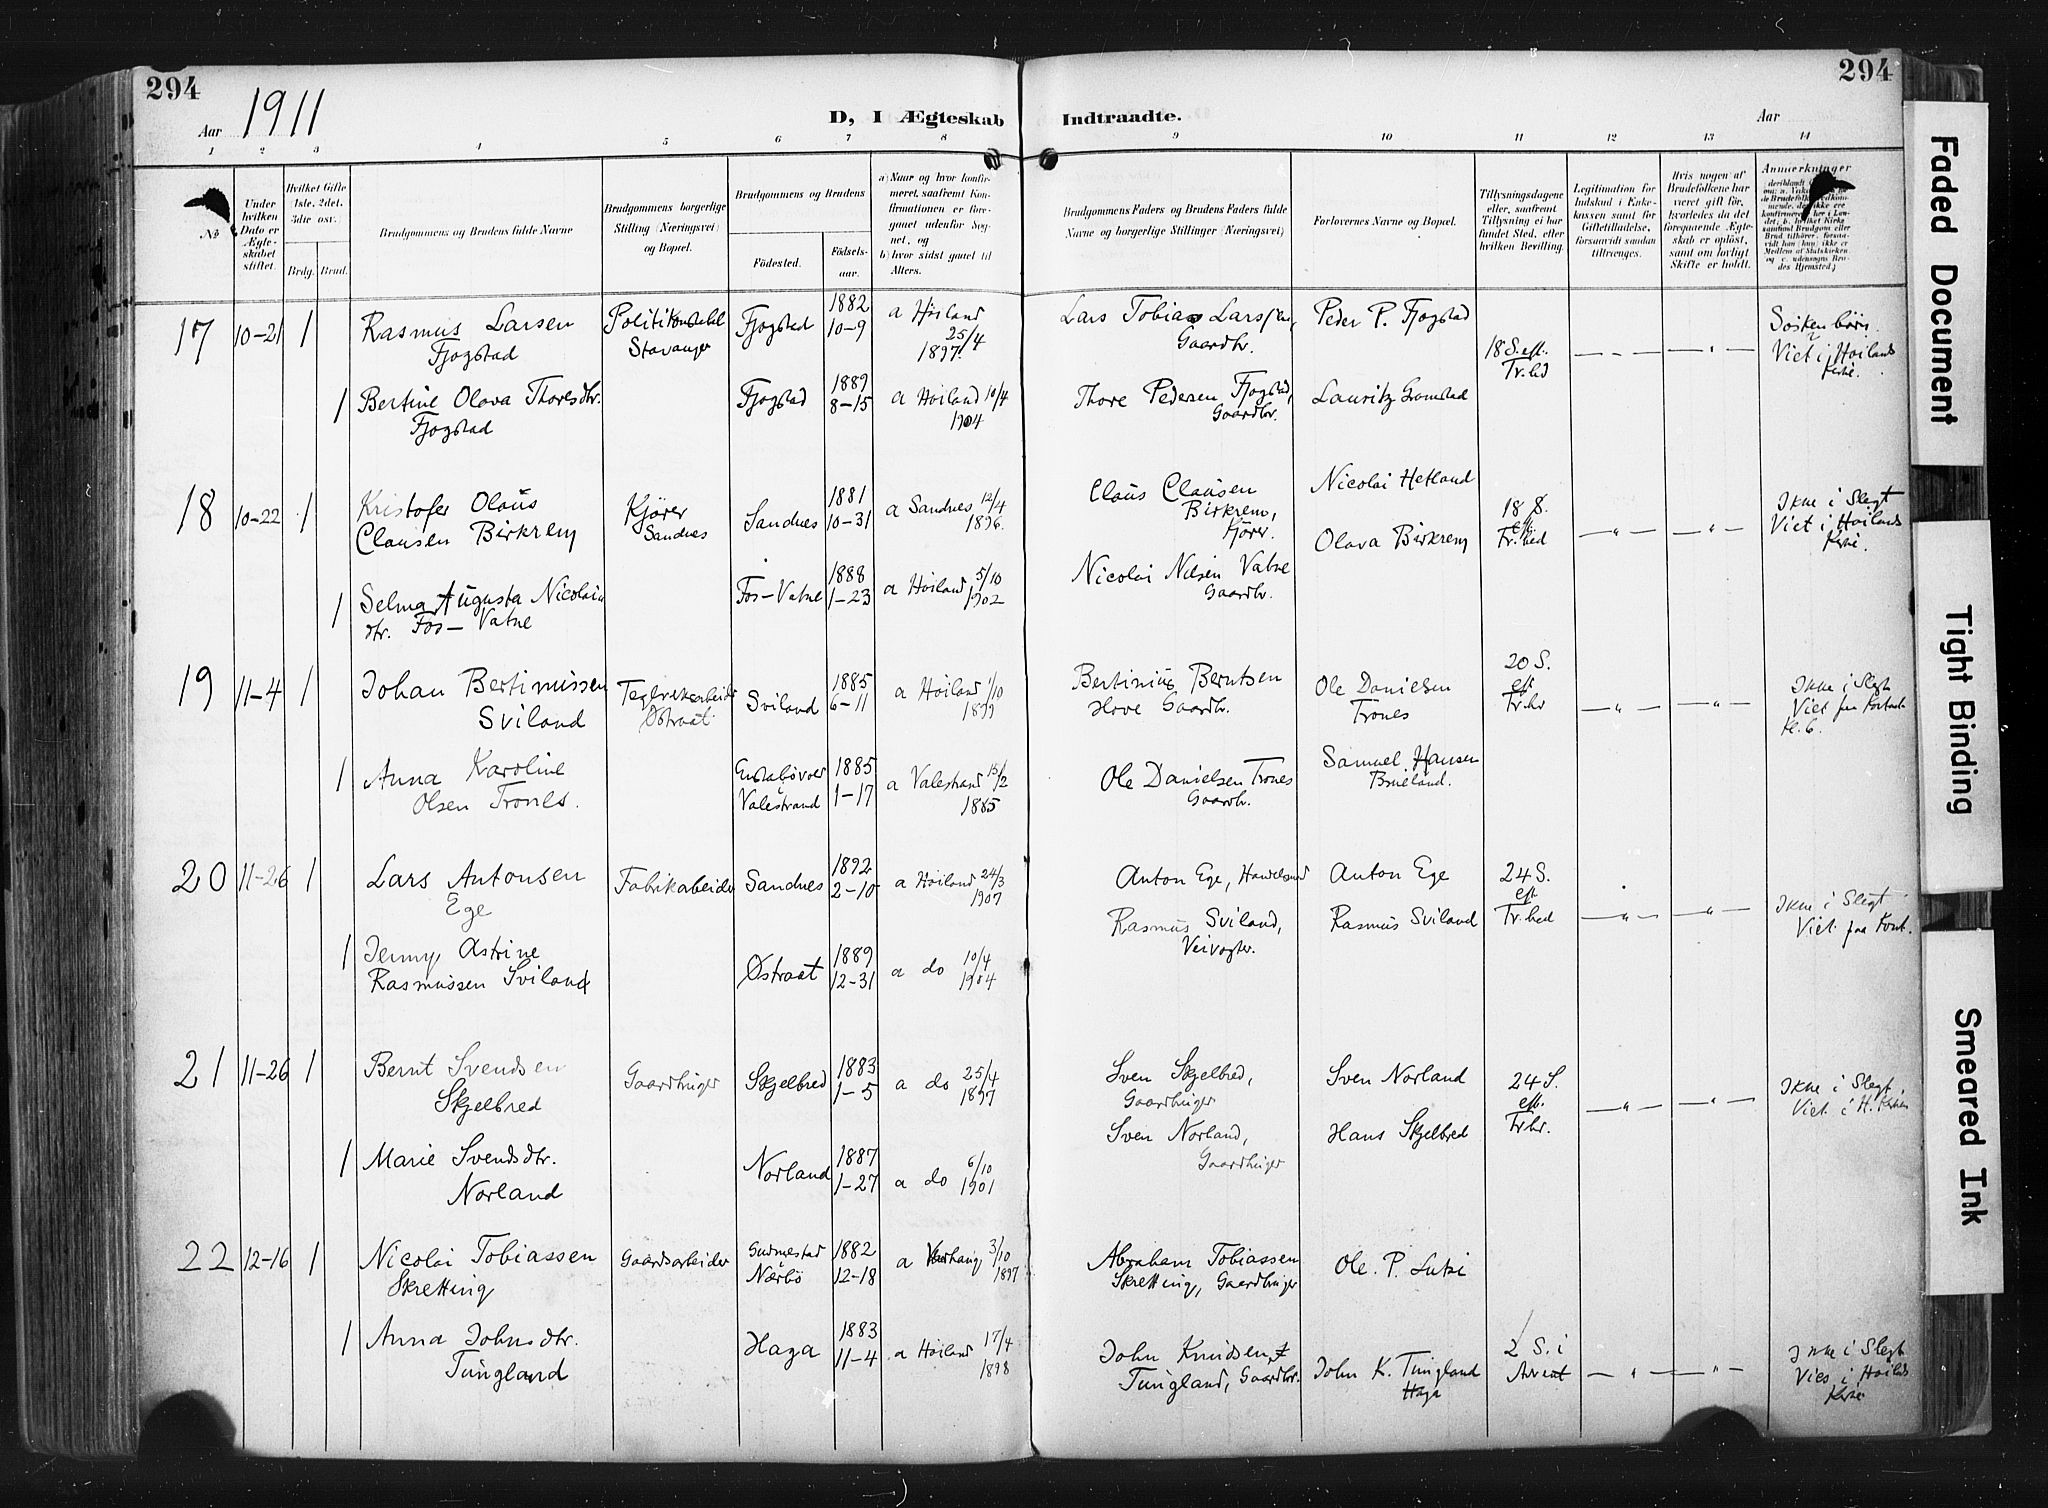 294
1911
D, I Ægteskab
Indtraadte.
294
Aar
Aar
1 2 3 4 5 6 7 8 9 10 11 12 13 14
No
Under hvilken Dato er Ægteskabet stiftet.
Hvilket Gifte 1ste, 2det, 3die osv.
Brdg. Brud.
Brudgommens og Brudens fulde Navne
Brudgommens borgerlige Stilling (Næringsvei) og Bopæl.
Brudgommens og Brudens
Fødested.
Fødselsaar.
a) Naar og hvor konfirmeret, saafremt Konfirmationen er foregaaet udenfor Sognet, og
b) hvor sidst gaaet til Alters.
Brudgommens Faders og Brudens Faders fulde Navne og borgerlige Stillinger (Næringsvei)
Forlovernes Navne og Bopæl.
Tillysningsdagene eller, saafremt Tillysning ei har fundet Sted, efter hvilken Bevilling.
Legitimation for Indskud i Enkekassen samt for Giftetilladelse, forsaavidt saadan tiltrænges.
Hvis nogen af Brudefolkene har været gift før, hvorledes da det foregaaende Ægteskab er opløst, samt om lovligt Skifte er holdt.
Anmærkninger
17 10-21 1 Rasmus Larsen Fjogstad
Politikonstabel Stavanger
Fjogstad 1882 10-9 a Høiland 25/4 1897.
Lars Tobias Larsen, Gaardbr.
Peder P. Fjogstad
18 S. eft. Tr.hd
Søskenbørn. Viet i Høilands Kirke.
1 Bertine Olava Thoresdtr. Fjogstad
Fjogstad 1889 8-15 a Høiland 10/4 1904
Thore Pedersen Fjogstad, Gaardbr.
Lauritz Gramstad
18 10-22 1 Kristofer Olaus Clausen Birkrem
Kjører Sandnes
Sandnes 1881 10-31 a Sandnes 12/4 1896.
Claus Clausen Birkrem, Kjører.
Nicolai Hetland
Olava Birkrem
18 S. eft. Tr.hed
Ikke i Slegt Viet i Høilands Kirke.
1 Selma Augusta Nicolaidtr. Fos-Vatne
Fos-Vatne 1888 1-23 a Høiland 5/10 1902
Nicolai Nilsen Vatne Gaardbr.
19 11-4 1 Johan Bertinussen Sviland
Teglverksarbeider Østraat
Sviland 1885 6-11 a Høiland 1/10 1899
Bertinius Berntsen Hove Gaardbr.
Ole Danielsen Trones
20 S. eft Tr.hd
Ikke i Slegt Viet paa
Kl. 6.
1 Anna Karoline Olsen Trones.
Valestrand 1885 1-17 a Valestrand 15/2 1885
Ole Danielsen Trones Gaardbr.
Samuel Hansen Brueland.
20 11-26 1 Lars Antonsen Ege
Fabrikabeider Sandnes 1892 2-10 a Høiland 24/3 1907
Anton Ege, Handelsmd
Anton Ege
24 S. eft Tr.hed
Ikke i Slegt Viet paa Kont.
1 Jenny Astrine Rasmussen Sviland
Østraat 1889 12-31 a do 10/4 1904
Rasmus Sviland, Veivogter.
Rasmus Sviland
21 11-26 1 Bernt Svendsen Skjelbred
Gaardbruger Skjelbred 1883 1-5 a do 25/4 1897
Sven Skjelbred, Gaardbruger
Sven Norland
24 S. eft. Tr.hr.
Ikke i Slegt, Viet i H. Kirken
1 Marie Svendsdtr. Norland
Norland 1887 1-27 a do 6/10 1901
Sven Norland, Gaardbruger
Hans Skjelbred
22 12-16 1 Nicolai Tobiassen Skretting
Gaardsarbeider Gudmestad Nærbø 1882 12-18 a Varhaug 3/10 1897
Abraham Tobiassen Skretting, Gaardbruger
Ole. P. Lutsi
2 S. i Advent
Ikke i Slegt Vies i Høilands Kirke
1 Anna Johnsdtr. Tungland
Haga 1883 11-4 a Høiland 17/4 1898
John Knudsen Tungland, Gaardbr.
John K. Tungland Haga
Faded Document
Tight Binding
Smeared Ink